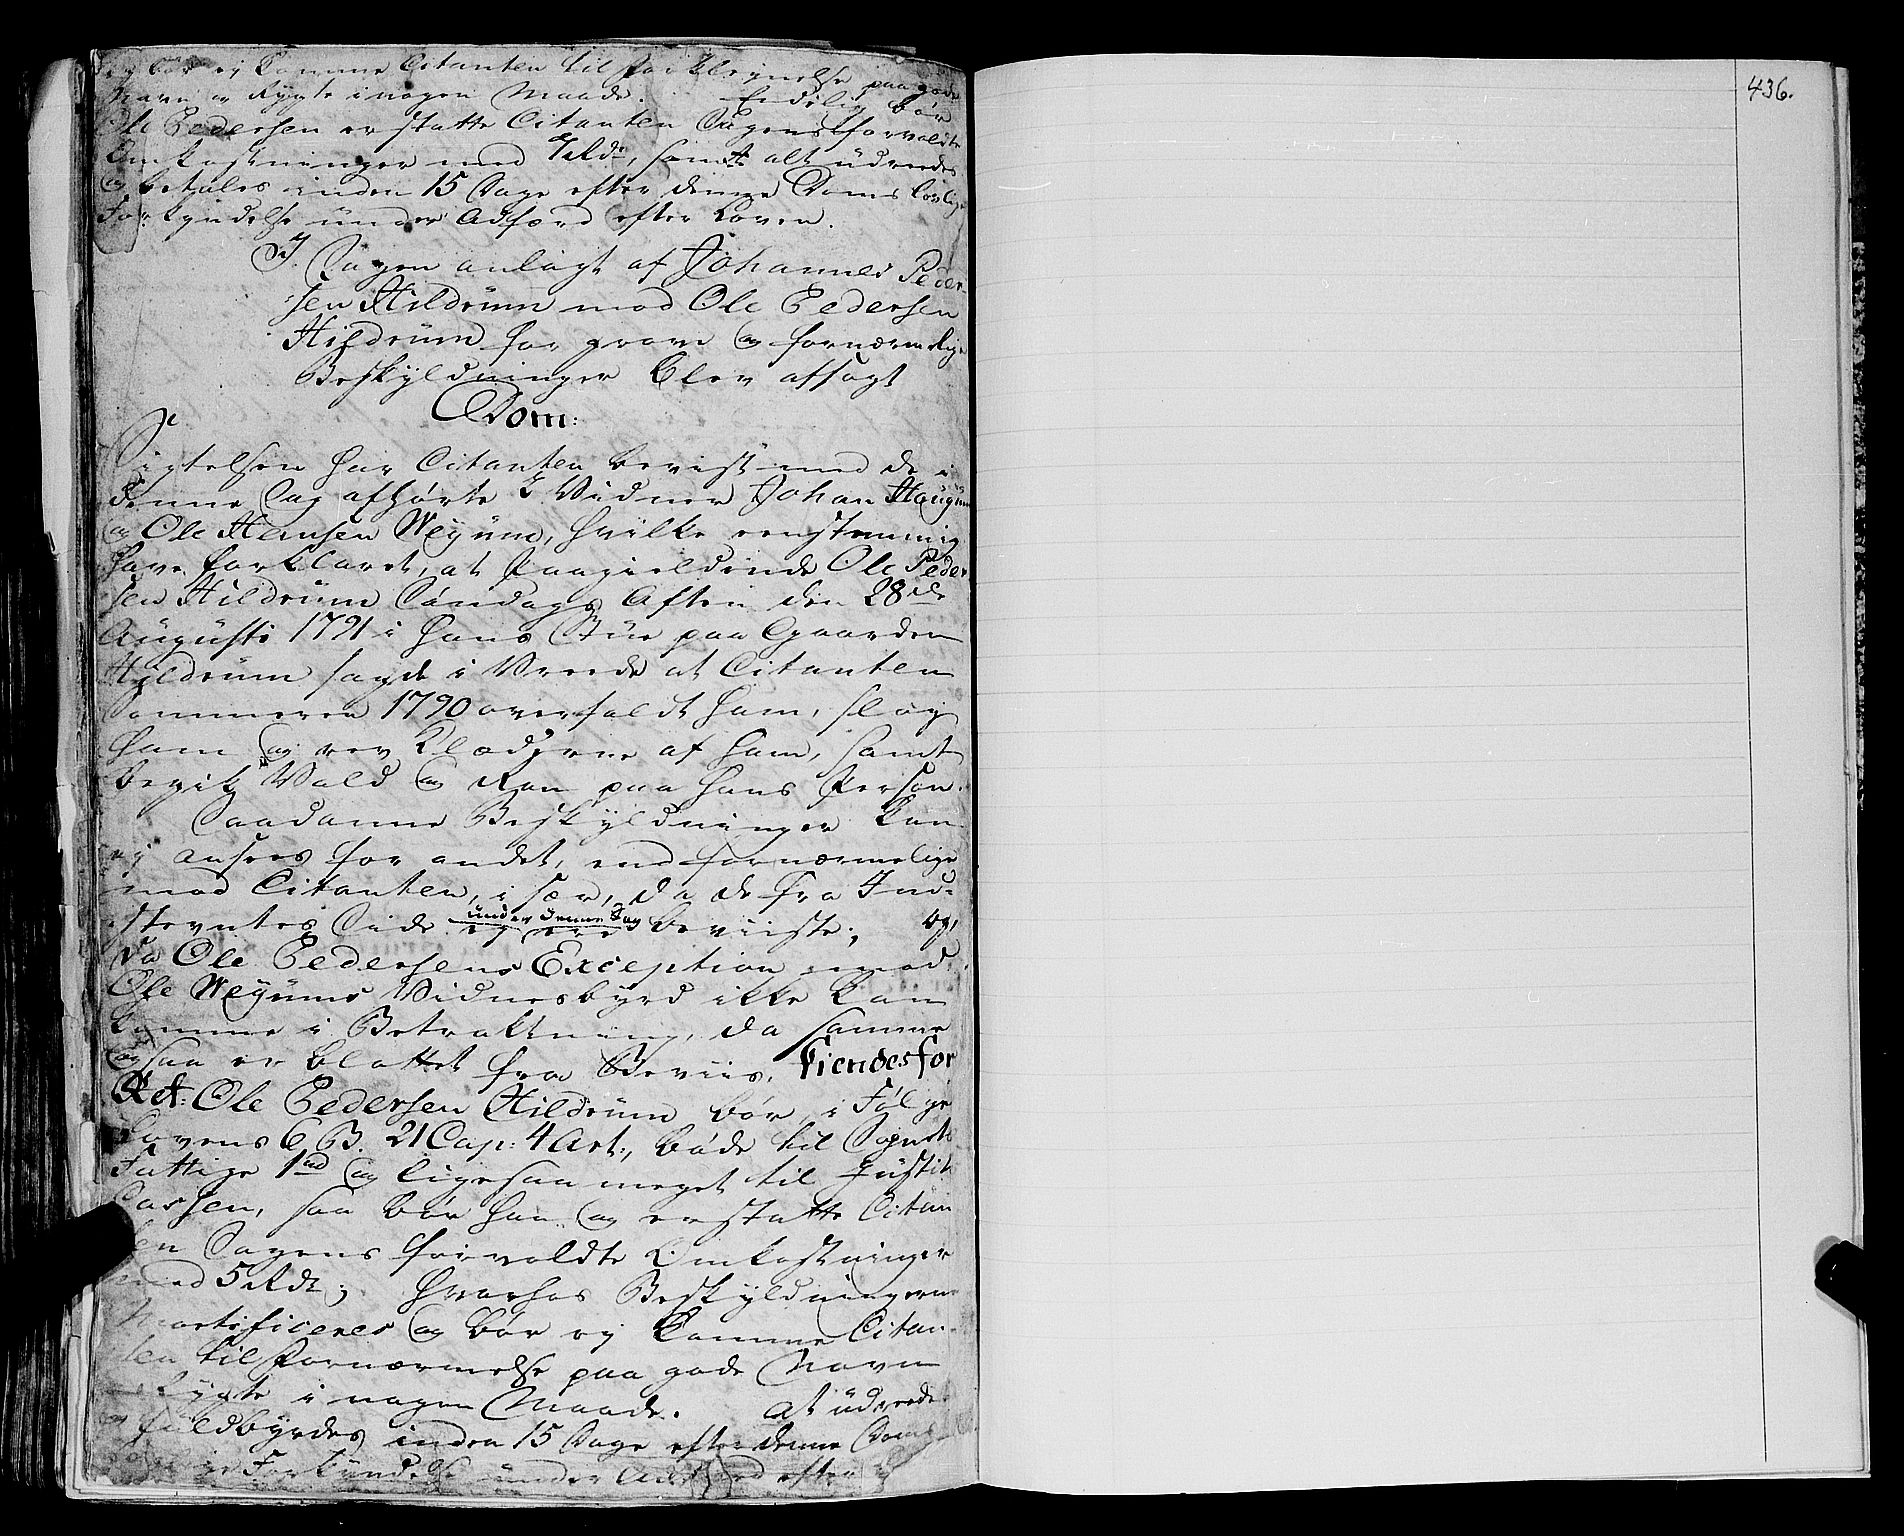 bør ej komme Citanten til Forkleinelse paa gode
Navn og Rygte i nogen Maade. Endelig bør
Ole Pedersen erstatte Citanten Sagens forvoldte
Omkostninger med 7 Rdr, samt alt udreedes
og betales inden 15 Dage efter denne Doms lovlige
Forkyndelse under Adfærd efter Loven.
I Sagen anlagt af Johannes Peder-
sen Hildrum mod Ole Pedersen
Hildrum for grove og fornærmelige
Beskyldninger blev afsagt
Dom:
Sigtelsen har Citanten bevist med de i
denne Sag afhørte 2 Vidner Johan Haugum
og Ole Hansen Wejum, hvilke eenstemmig
have forklaret, at Paagieldende Ole Peder
sen Hildrum Søndags Aften den 28de
Augusti 1791 i hans Stue paa Gaarden
Hyldrum sagde i Vrede at Citanten
Sommeren 1790 overfaldt ham, slog
ham og rev Klæderne af ham, samt
begik Vold og Ran paa hans Person.
Saadanne Beskyldninger kan
ej ansees for andet, end fornærmelige
mod Citanten, i sær, da de fra Ind-
stevntes Side under denne Sag ej ere beviiste; og,
da Ole Pedersens Exception imod
Ole Wejums Vidnesbyrd ikke kan
komme i Betraktning, da samme
ogsaa er blottet fra Beviis. Kiendes for
Ret: Ole Pedersen Hildrum bør i Følge
Lovens 6 B. 21 Cap: 4 Art:, bøde til Sognets
Fattige 1 Rd og ligesaa meget til Justits
Cassen, saa bør han og erstatte Citan
ten Sagens forvoldte Omkostninger
med 5 Rdr; hvorhos Beskyldningerne
Mortificeres og bør ej komme Citan-
ten til Fornærmelse paa gode Navn
Rygte i nogen Maade. At udredes
og fuldbyrdes inden 15 Dage efter denne Doms
Forkyndelse under Adfærd efter
436.